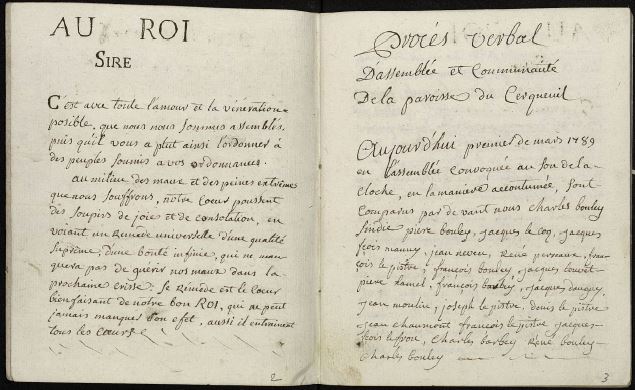 AU ROI
SIRE
C'est avec toute l'amour et la vénération
posible, que nous nous sommes assemblés,
puis qu'il vous a plut ainsi l'ordonner à
des peuples soumis a vos ordonnances.
au milieu des maux et des peines extrêmes
que nous souffrons, nôtre coeur poussent
des soupirs de joie et de consolation, en
voiant un Remède universelle d'une qualité
suprême, d'une bonté infinie, qui ne man-
quera pas de guérir nos maux dans la
prochaine crisse. Le Remède est le Coeur
bienfaisant de notre bon ROI, qui ne peut
jamais manquer son efet, aussi il entrainent
tous les Coeurs
2
Procés verbal
D'assemblée et Communauté
De la paroisse du Cerqueuil
Aujourd'hui premier de mars 1789
en l'assemblée convoquée au son de la
cloche, en la manière accoutumée, sont
Comparus par devant nous Charles bouley
sindic pierre bouley, jacques le coq, jacques
fçois mauny, jean neveu, René pernaux, fran-
çois le pistre, françois bouley, jacques
pierre hamel, françois barbey, jacques
jean moulin, joseph le pistre, denis le pistre
jean chaumont françois le pistre jacques-
fçois, Charles barbey René bouley-
Charles bouley
3